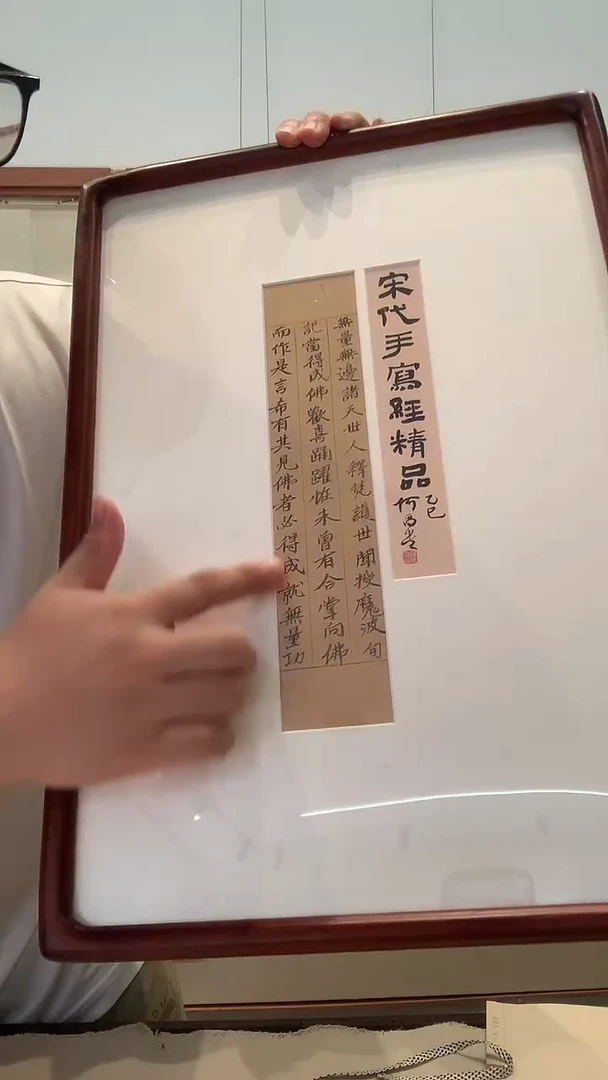 宋代手寫經精品
乙巳
無量無邊諸天世人釋梵護世聞授魔波旬
記當得成佛歡喜踊躍恠未曾有合掌向佛
而作是言希有共見佛者必得成就無量功